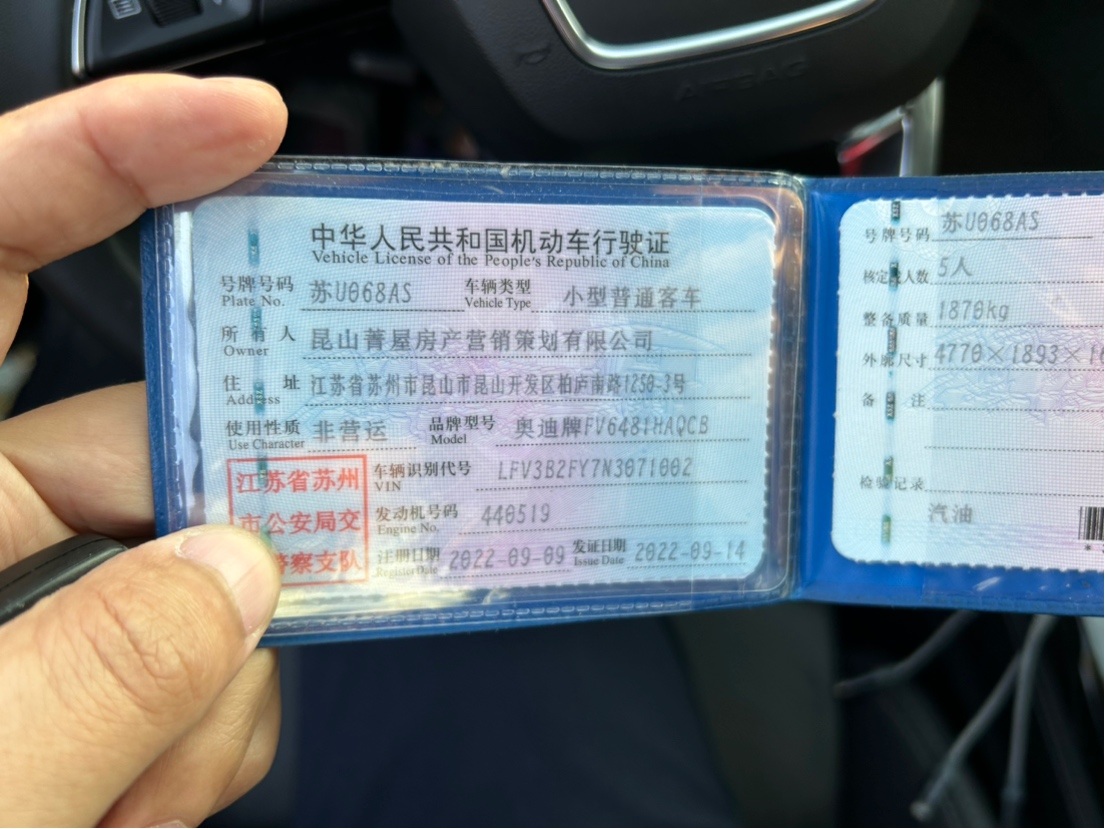 中华人民共和国机动车行驶证
Vehicle License of the People's Republic of China
号牌号码 苏U068AS 车辆类型 小型普通客车
Plate No. Vehicle Type
所有人 昆山菁屋房产营销策划有限公司
Owner
住址 江苏省苏州市昆山市昆山开发区柏庐南路1258-3号
Address
使用性质 非营运 品牌型号 奥迪牌FV6481HAQCB
Use Character Model
江苏省苏州
市公安局交
警察支队
车辆识别代号 LFV3B2FY7N3071002
VIN
发动机号码 440519
Engine No.
注册日期 2022-09-09 发证日期 2022-09-14
Register Date Issue Date
号牌号码 苏U068AS
核定 人数 5人
整备质量 1870kg
外廓尺寸 4770×1893×16
备注
检验记录
汽油
AIRBAG